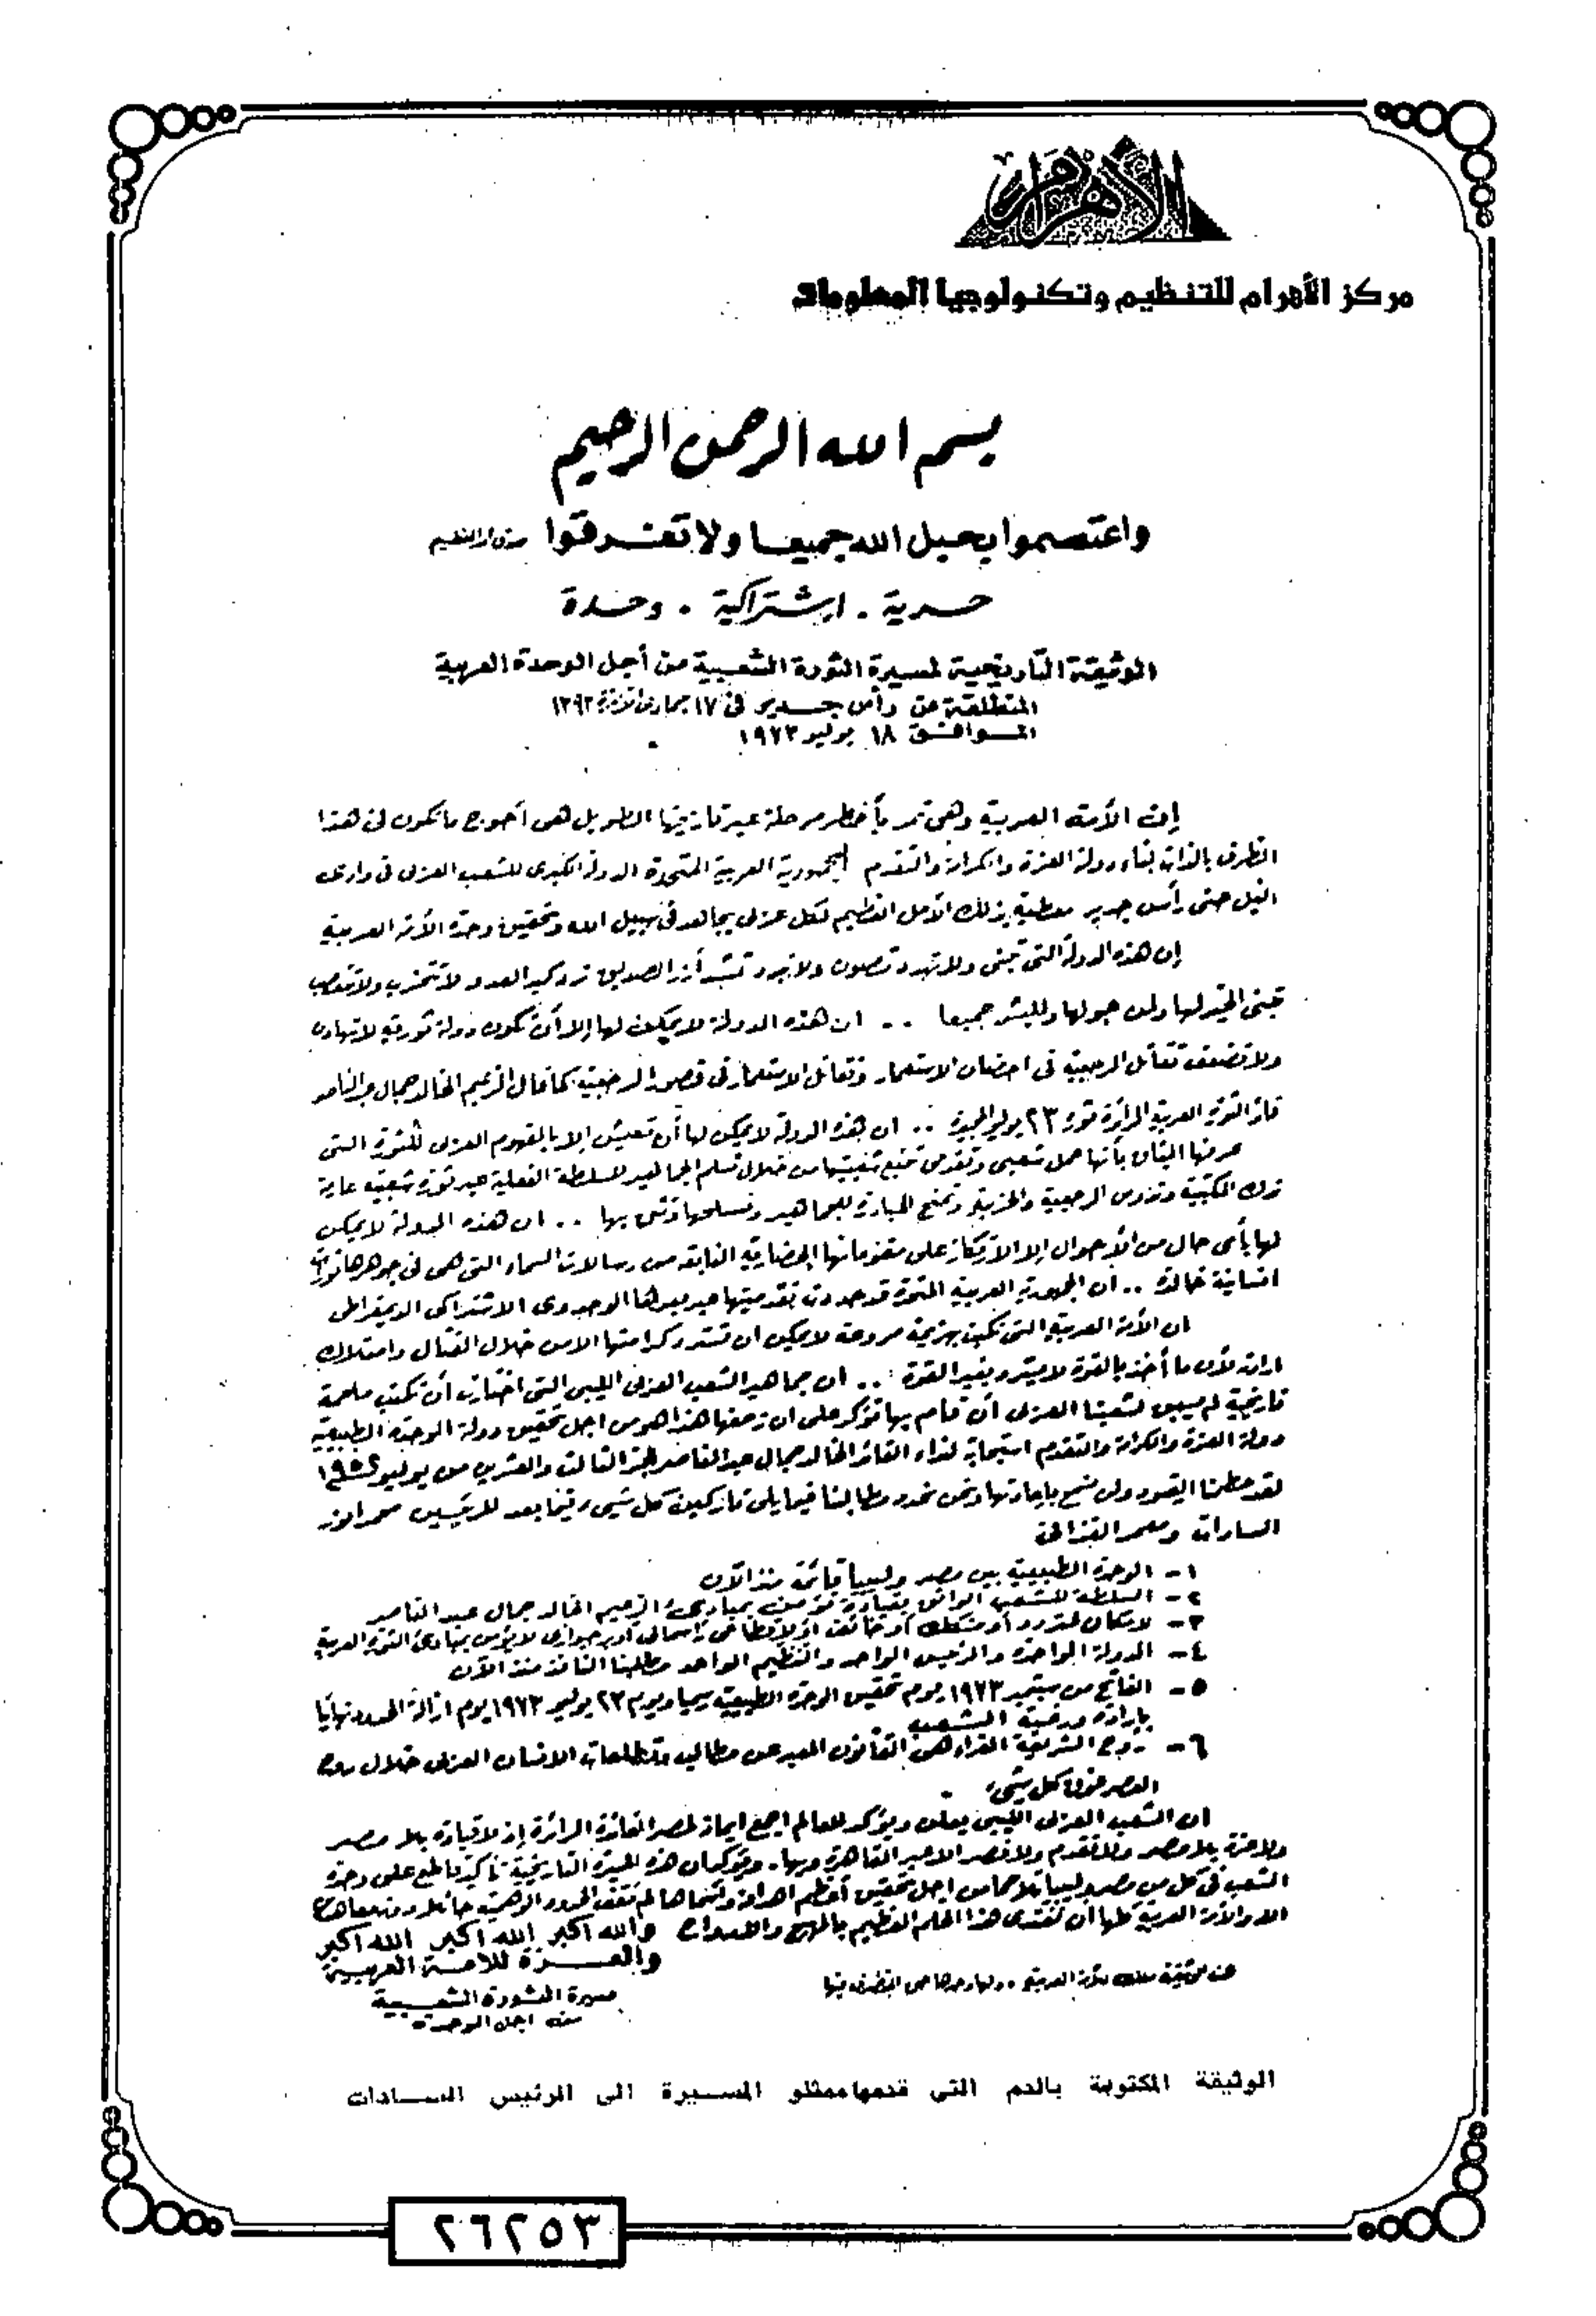 الأهرام
مركز الأهرام للتنظيم وتكنولوجيا المعلومات
بسم الله الرحمن الرحيم
واعتصموا بحبل الله جميعا ولا تفرقوا صدق الله العظيم
حرية . اشتراكية . وحدة
الوثيقة التاريخية لمسيرة الثورة الشعبية من أجل الوحدة العربية
المنطلقة من رأس جدير فى ١٧ جمادى ١٣٩٣
الموافق ١٨ يوليو ١٩٧٣
إن الأمة العربية وهى تمر بأخطر مرحلة عبر تاريخها الطويل هى أحوج ما تكون فى هذا
الظرف بالذات لبناء دولة العزة والكرامة والتقدم الجمهورية العربية المتحدة الدولة الكبرى للشعب العربى فى وادى
النيل حتى رأس جدير معطية بذلك الأمل العظيم لكل عربى يجاهد فى سبيل الله وتحقيق وحدة الأمة العربية
إن هذه الدولة التى تبنى ولا تهدد تصون ولا تبدد تشد أزر الصديق ترد كيد العدو لا تتحزب ولا تتعصب
تبنى الخير لها ولمن حولها وللبشر جميعا .. ان هذه الدولة لا يمكن لها إلا أن تكون دولة ثورية لا تهادن
ولا تضعف تقاتل الرجعية فى احضان الاستعمار وتقاتل الاستعمار فى قصور الرجعية كما قال الزعيم الخالد جمال عبد الناصر
قائد الثورة العربية الرائدة ثورة ٢٣ يوليو المجيدة .. ان هذه الدولة لا يمكن لها أن تعيش إلا بالمفهوم العربى للثورة التى
عرفها الميثاق بأنها عمل شعبى وتقدمى تنبع شعبيتها من خلال تسلم الجماهير للسلطة الفعلية عبر ثورة شعبية عارمة
تدك المكتبية وتدوس الرجعية والحزبية وتمنح المبادرة للجماهير وتسلحها وتثق بها .. ان هذه الدولة لا يمكن
لها بأى حال من الأحوال إلا الارتكاز على مقوماتها الحضارية النابعة من رسالات السماء التى هى فى جوهرها ثورات
انسانية خالدة .. ان الجمهورية العربية المتحدة قد حددت تقدميتها عبر ميراثها الوحدوى الاشتراكى الديمقراطى
ان الأمة العربية التى نكبت بهزيمة مروعة لا يمكن ان تسترد كرامتها الا من خلال القتال وامتلاك
ارادته لأن ما أخذ بالقوة لا يسترد بغير القوة .. ان جماهير الشعب العربى الليبى التى اختارت أن تكتب ملحمة
تاريخية لم يسبق لشعبنا العربى أن قام بها تؤكد على ان زحفها هذا هو من اجل تحقيق دولة الوحدة الطبيعية
دولة العزة والكرامة والتقدم استجابة لنداء القائد الخالد جمال عبد الناصر الثالث والعشرين من يوليو ١٩٥٢
لقد حطمنا القيود ولن نسمح باعادتها ونحن نحدد مطالبنا فيما يلى تاركين كل شىء فيما بعد للرئيسين محمد انور
السادات ومعمر القذافى
١ - الوحدة الطبيعية بين مصر وليبيا قائمة منذ الآن
٢ - السلطة للشعب الواثق بقيادة تؤمن بمبادىء الزعيم الخالد جمال عبد الناصر
٣ - لا مكان لمتردد أو متشكك أو خائف أو لاقطاعى رأسمالى أو برجوازى لا يؤمن بمبادئ الثورة العربية
٤ - الدولة الواحدة والرئيس الواحد والتنظيم الواحد مطلبنا النافذ منذ الآن
٥ - الفاتح من سبتمبر ١٩٧٣ يوم تحقيق الوحدة الطبيعية رسميا ويوم ٢٣ يوليو ١٩٧٣ يوم ازالة الحدود نهائيا
بارادة ورغبة الشعب
٦ - روح الشريعة الغراء هى القانون المعبر عن مطالب وتطلعات الانسان العربى خلال روح
العصر فوق كل شىء
ان الشعب العربى الليبى يعلن ويؤكد للعالم اجمع ايمانه لمصر القائدة الرائدة إذ لا قيادة بلا مصر
ولا عزة بلا مصر ولا تقدم ولا نصر الا عبر القاهرة وبها . ويؤكد ان هذه المسيرة التاريخية تأكيد قاطع على وحدة
الشعب فى كل من مصر وليبيا تلاحما من اجل تحقيق أعظم اهدافه وأسماها لم تقف الحدود الوهمية حائلا دون
الا والأمة العربية كلها ان تفتدى هذا الحلم العظيم بالمهج والارواح والله اكبر الله اكبر الله اكبر
والعزة للامة العربية
هذه الوثيقة ملك للأمة العربية .. ولها وحدها حق التصرف فيها
مسيرة الثورة الشعبية
من اجل الوحدة
الوثيقة المكتوبة بالدم التى قدمها ممثلو المسيرة الى الرئيس السادات
٢٦٢٥٣